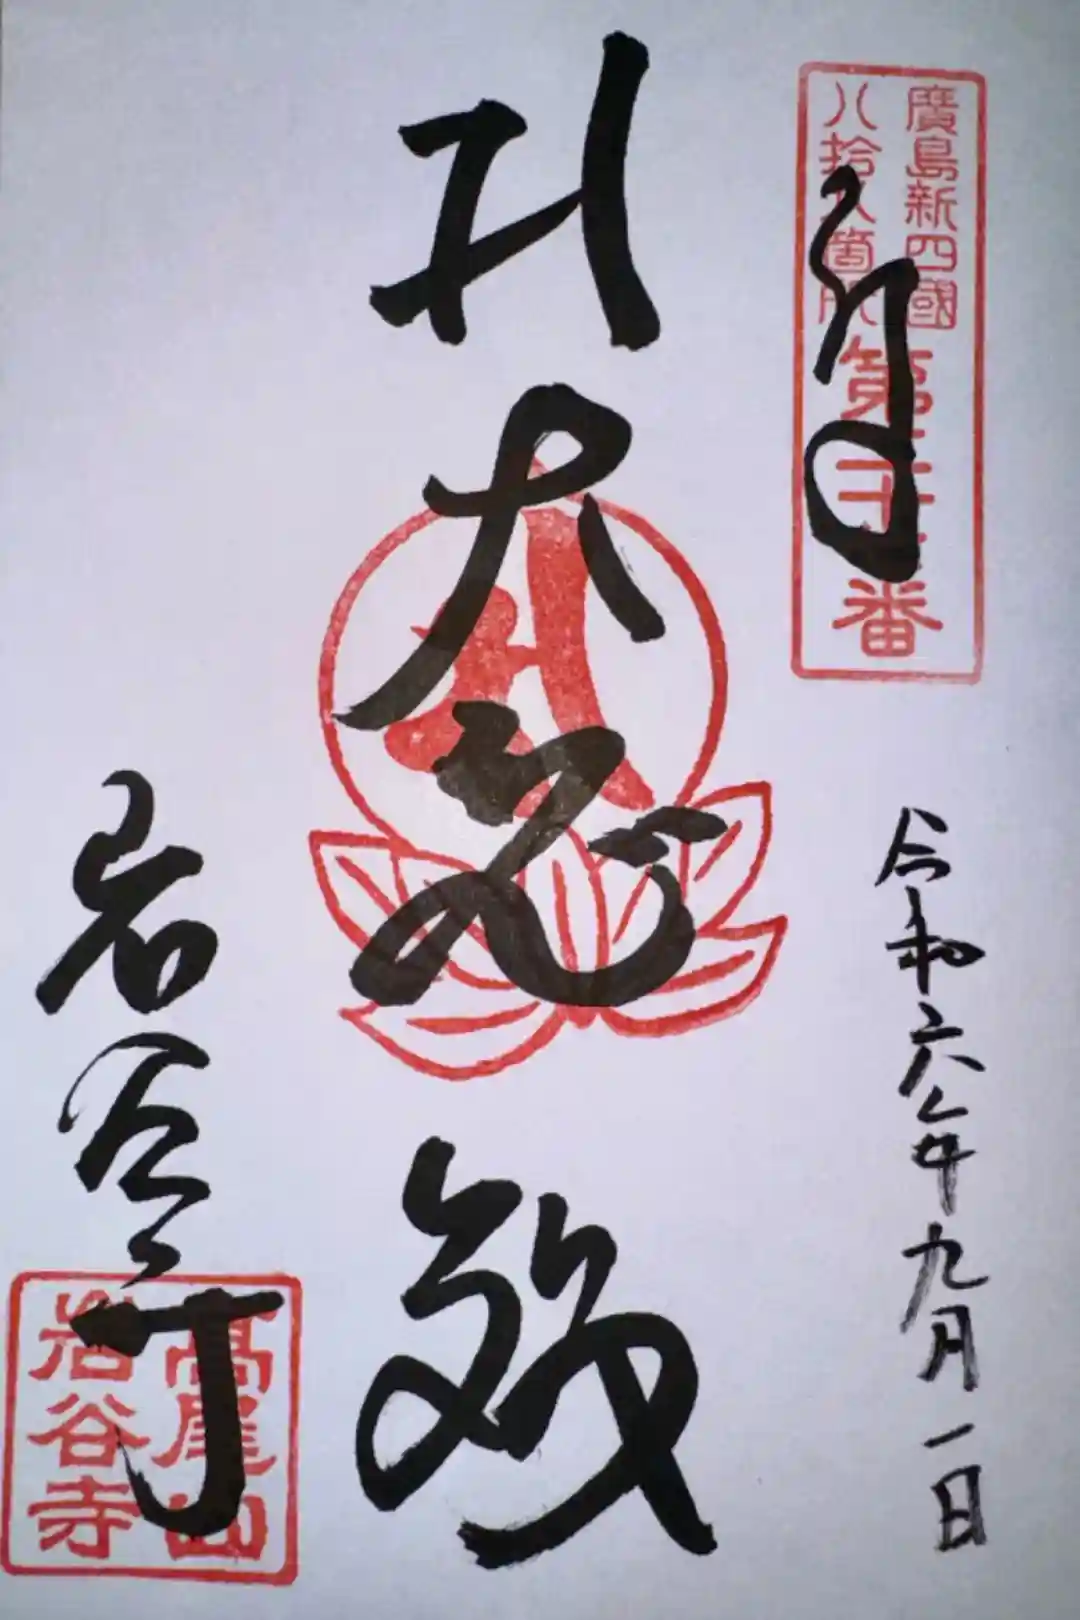 廣島新四國
八拾八箇所
奉拝
令和六年九月一日
大悲殿
岩谷寺
高尾山
岩谷寺